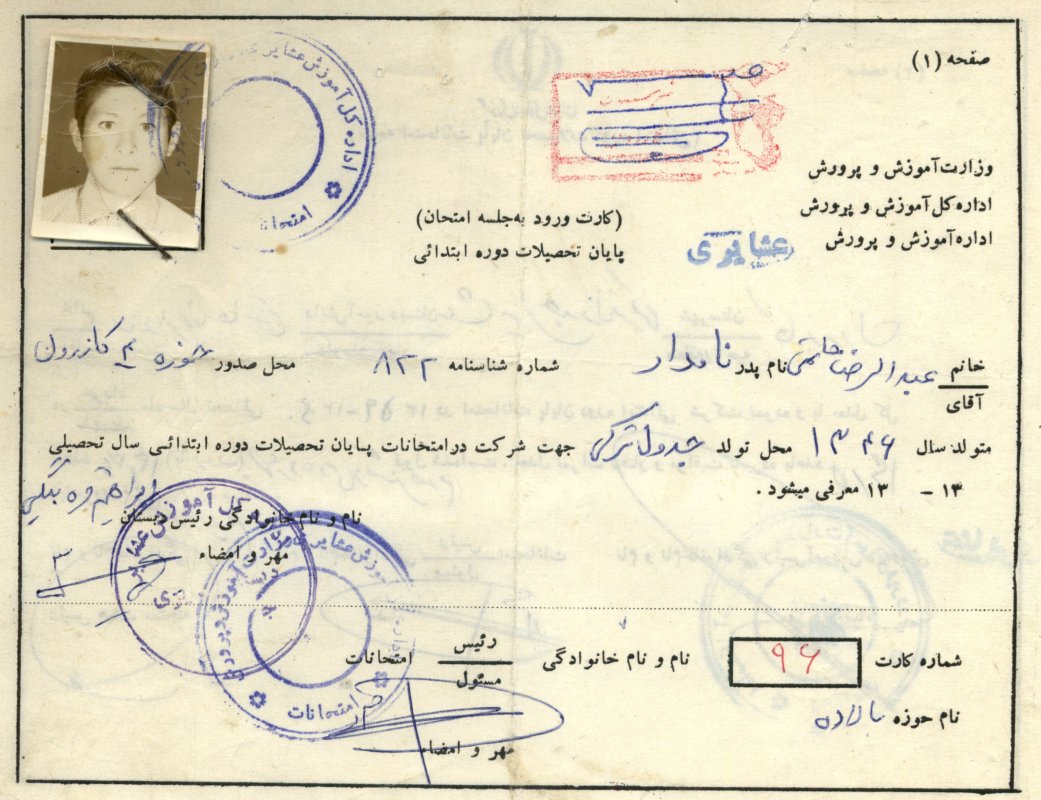 صفحه (۱)
وزارت آموزش و پرورش
اداره کل آموزش و پرورش
اداره آموزش و پرورش عشایری
(کارت ورود به جلسه امتحان)
پایان تحصیلات دوره ابتدائی
اداره کل آموزش عشایری
امتحانات
خانم
آقای
عبدالرضا حاتمی نام پدر نامدار شماره شناسنامه ۸۳۲ محل صدور حوزه ۳ کازرون
متولد سال ۱۳۴۶ محل تولد جدول ترکی جهت شرکت در امتحانات پایان تحصیلات دوره ابتدائی سال تحصیلی
۱۳ - ۱۳ معرفی میشود .
نام و نام خانوادگی رئیس دبستان
مهر و امضاء
شماره کارت ۹۶ نام و نام خانوادگی رئیس
مسئول
امتحانات
نام حوزه بالاده
مهر و امضاء
امتحانات